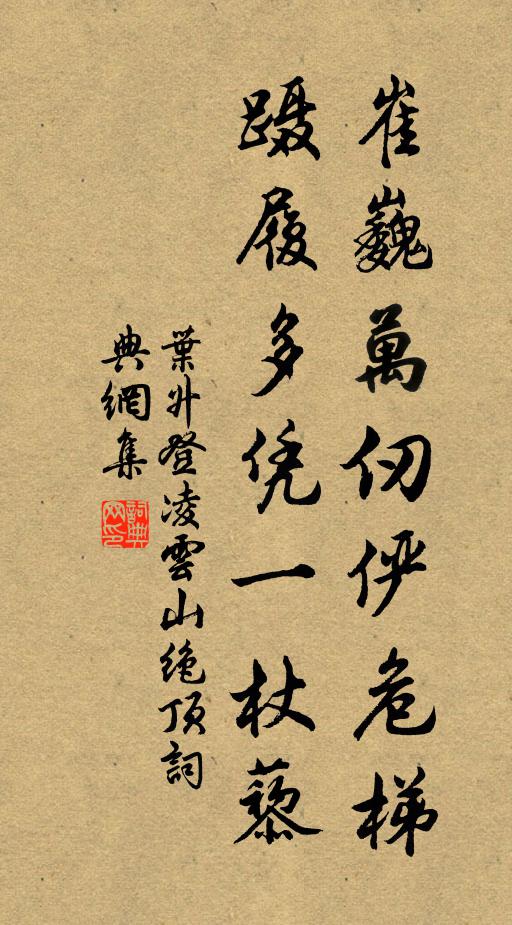 崔巍萬仞俨危梯
蹑履多凭一杖藜
葉外登凌雲山绝顶詞
典網集
詞典网印